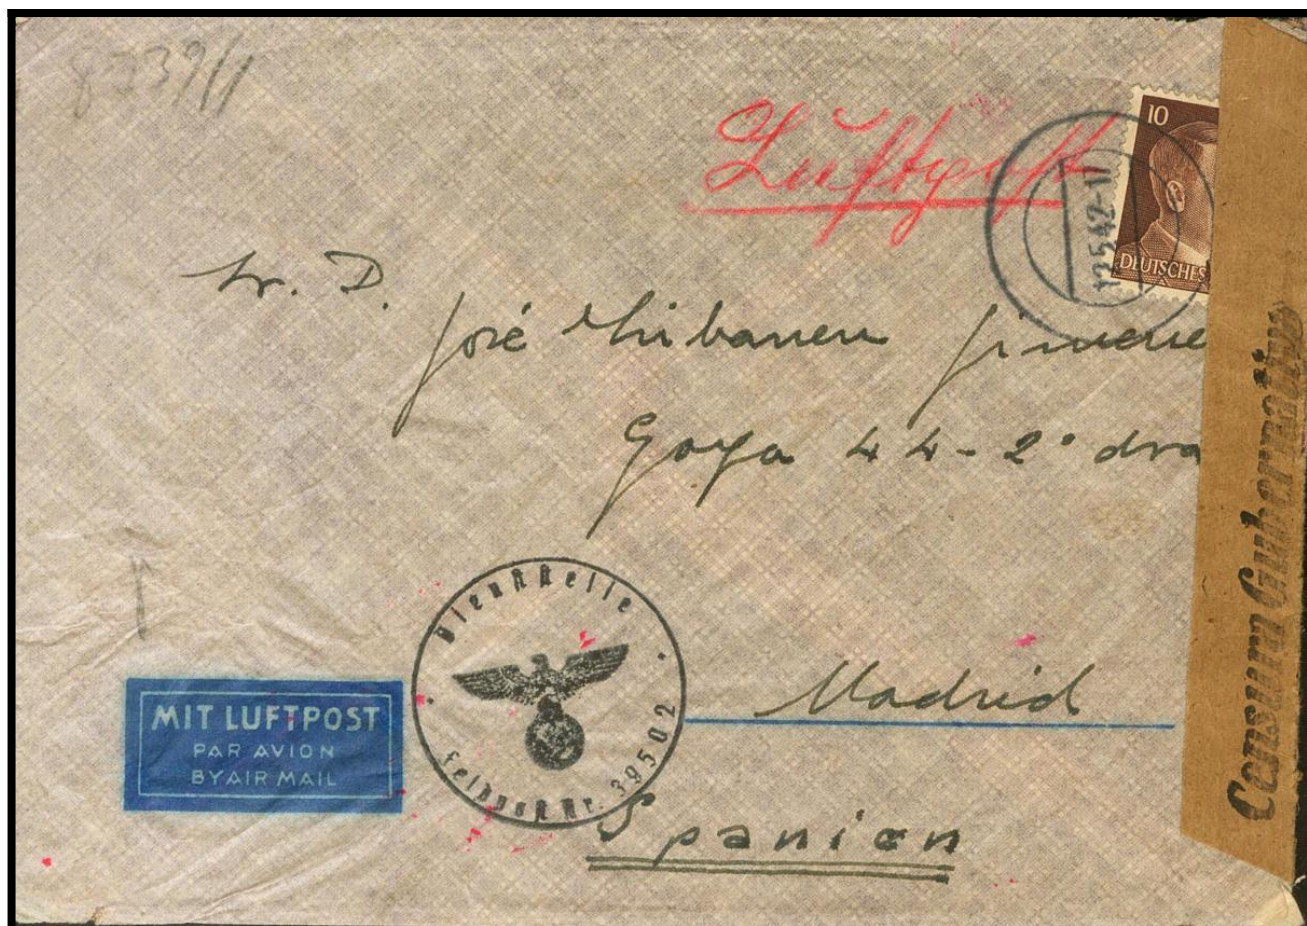 8739/1
Luftpost
10
DEUTSCHES
12.5.42-11
Sr. D.
José
Goya 44-2º dra
Madrid
Spanien
MIT LUFTPOST
PAR AVION
BY AIR MAIL
Dienststelle
Feldpost Nr. 39502
Censura Gubernativa